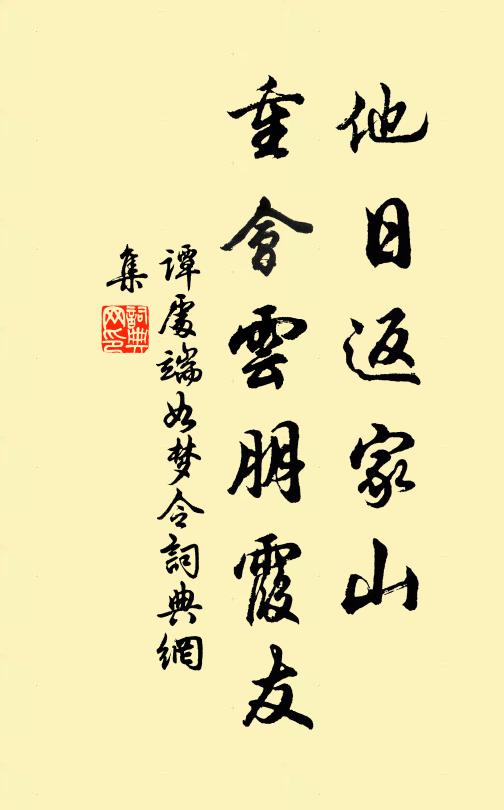 他日返家山
重會雲朋霞友
譚處端如梦令詞典網
集
詞典
网印